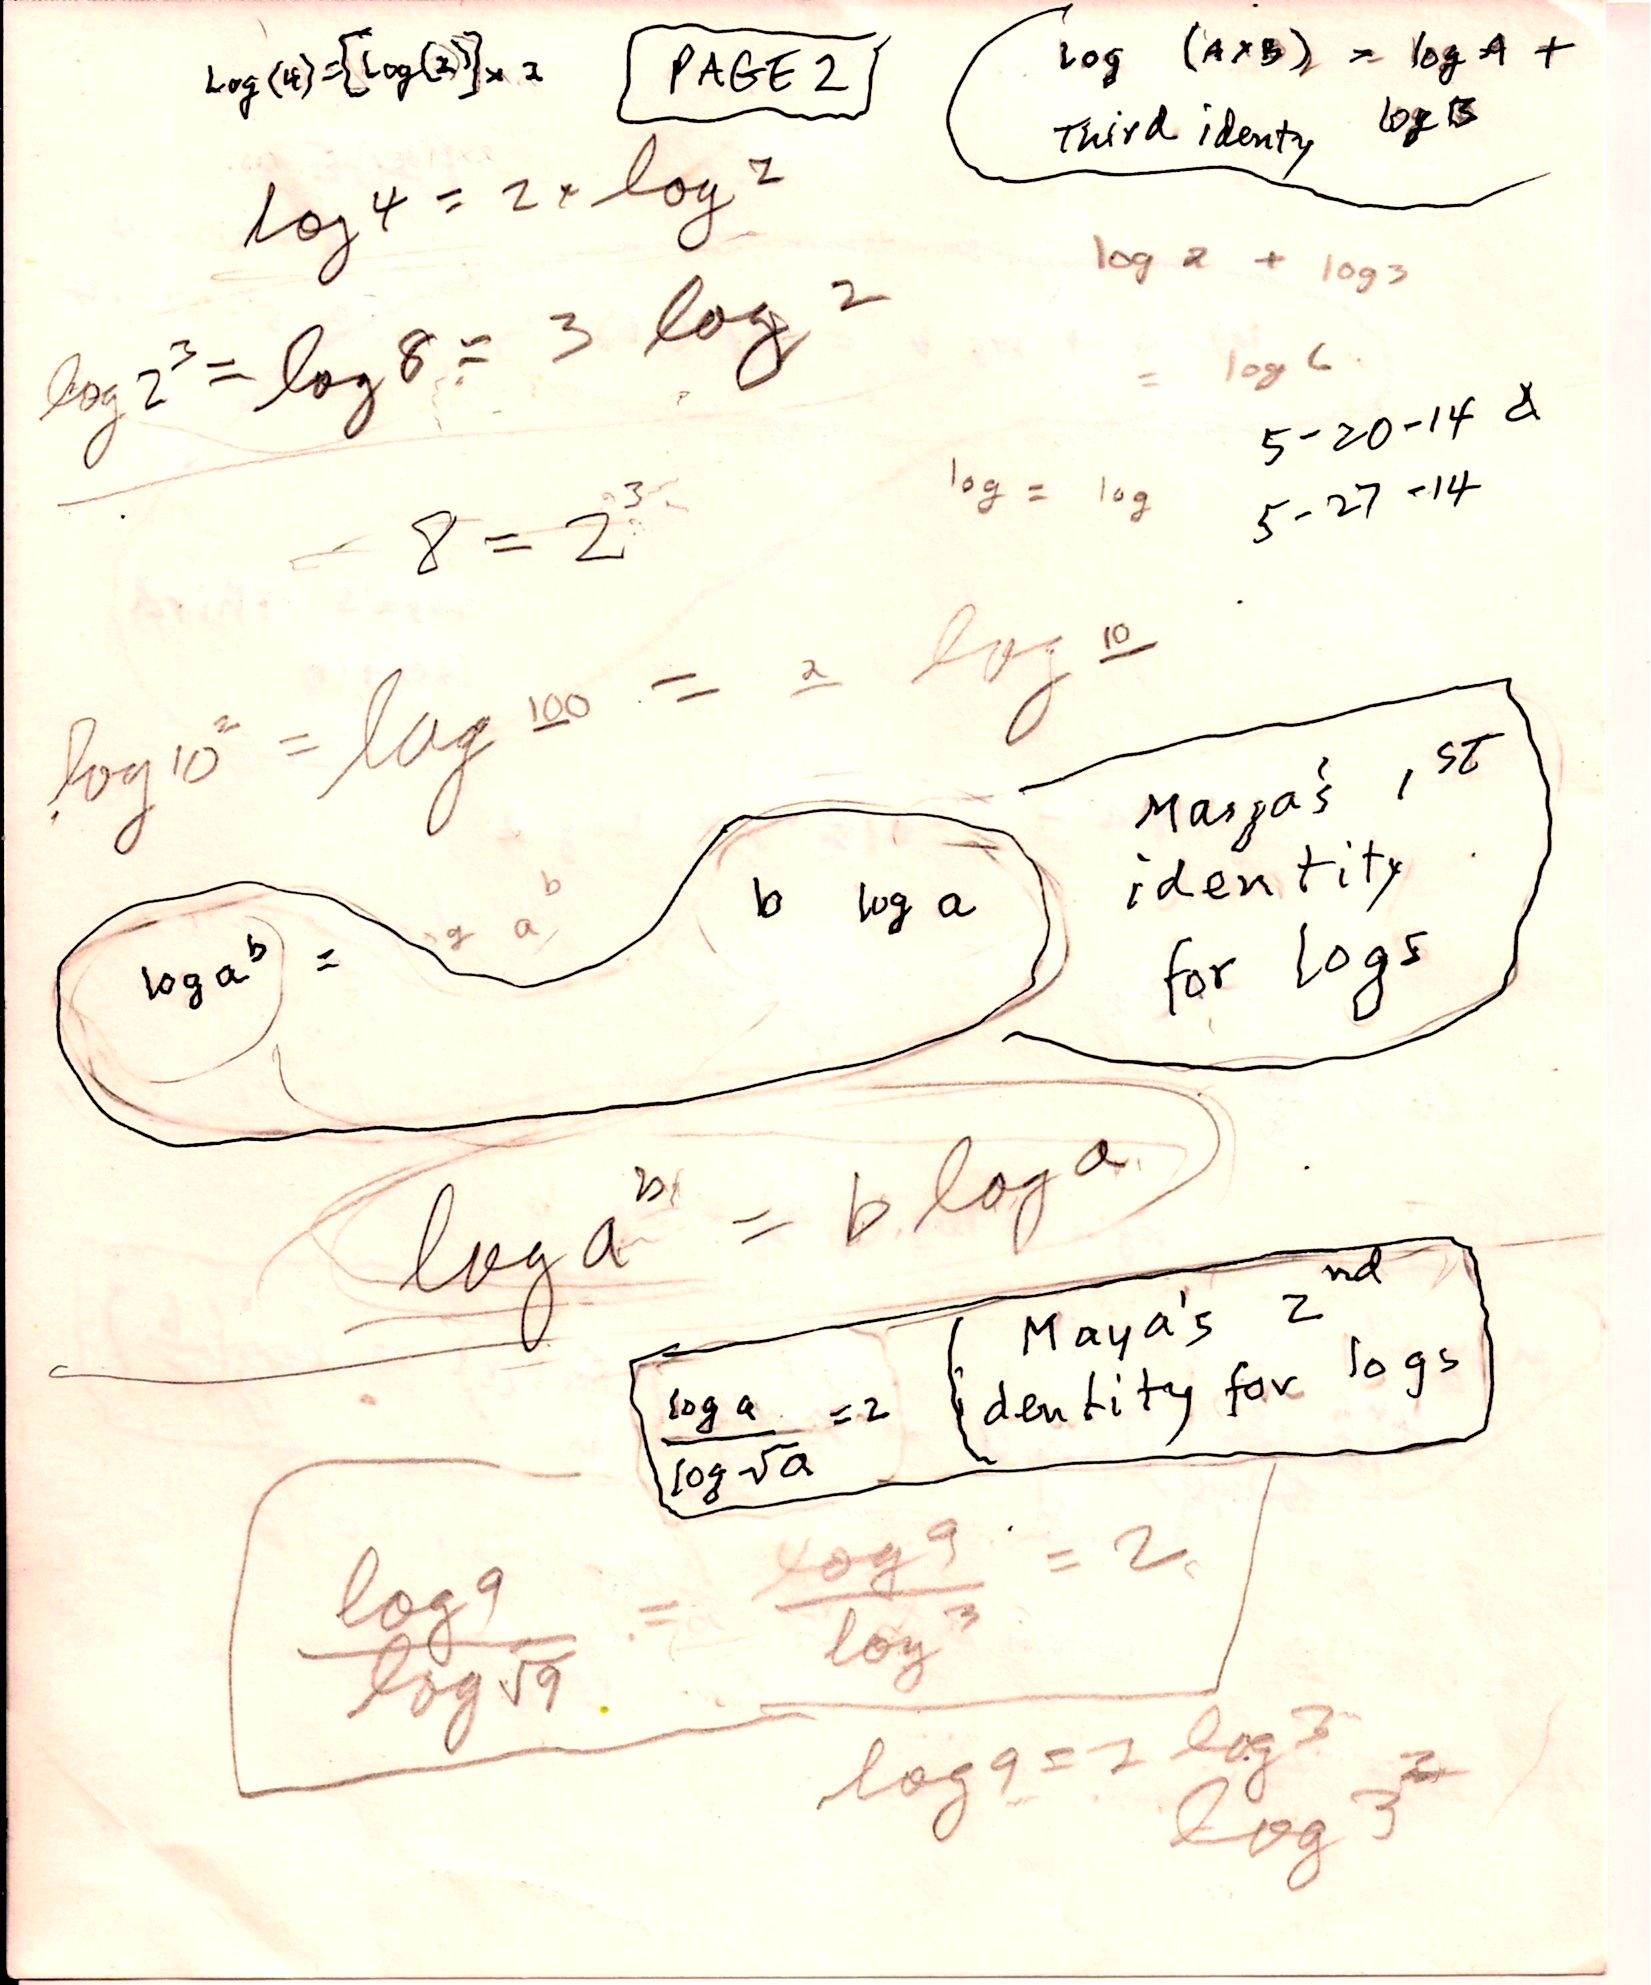 Log(4)={Log(2)}x2
PAGE 2
log (A×B) = log A +
log B
Third identy
log 4 = 2 × log 2
log 2 + log 3
= log 6
log 2³ = log 8 = 3 log 2
5-20-14 &
5-27-14
log = log
8 = 2³
log 10² = log 100 = 2 log 10
Maya's 1ST
identity
for logs
a^b
log a^b = b log a
log a^b = b log a
Maya's 2nd
identity for logs
log a / log √a = 2
log 9 / log √9 = log 9 / log 3 = 2
log 9 = 2 log 3
log 3²